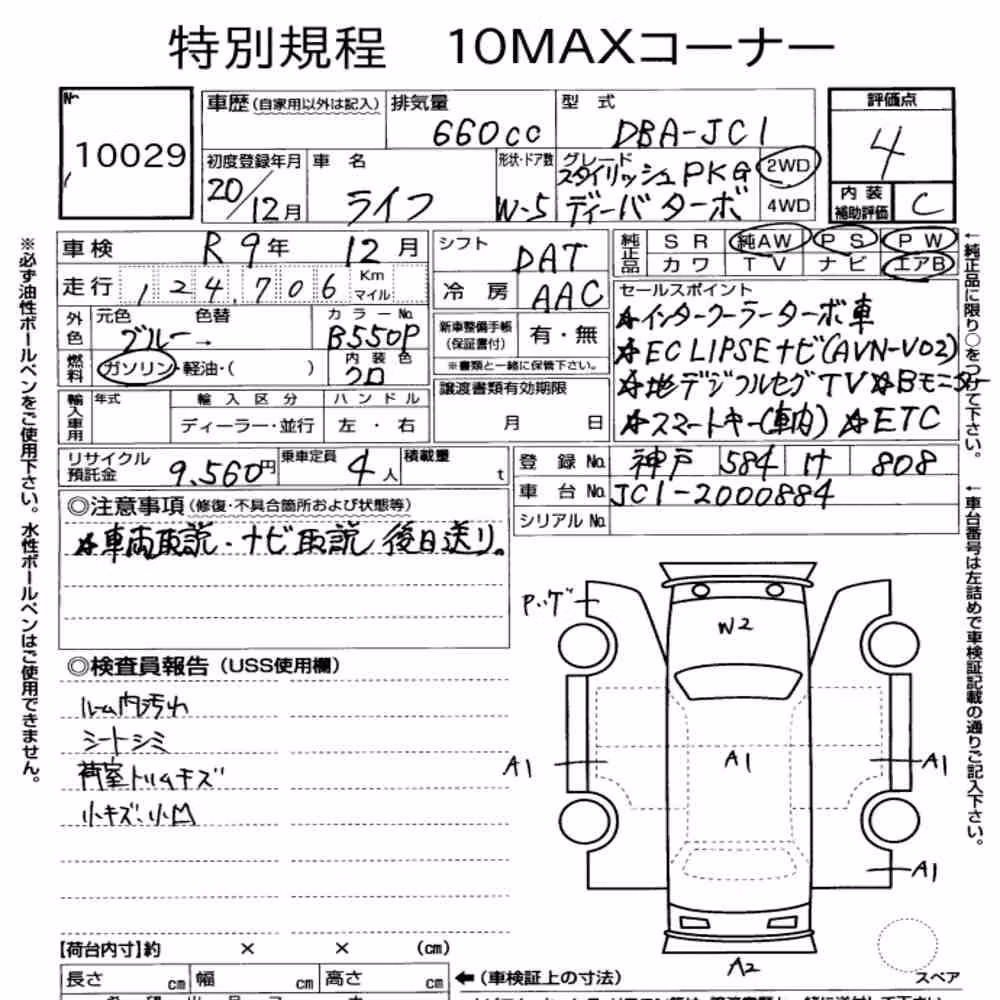 特別規程 10MAXコーナー
No 10029
車歴(自家用以外は記入) 排気量 660cc
型式 DBA-JC1
評価点 4
初度登録年月 20/12月
車名 ライフ
形状・ドア数 W-5
グレード スタイリッシュPKG ディーバターボ
2WD 4WD
内装補助評価 C
車検 R9年 12月
走行 124,706 Km マイル
シフト DAT
冷房 AAC
純正品 SR 純AW PS PW
カワ TV ナビ エアB
外色 元色 ブルー → 色替
カラーNo. B550P
燃料 ガソリン・軽油・( )
内装色 クロ
新車整備手帳(保証書付) 有・無
※書類と一緒に保管下さい。
セールスポイント
☆インタークーラーターボ車
☆ECLIPSEナビ(AVN-V02)
☆地デジフルセグTV☆Bモニター
☆スマートキー(車内) ☆ETC
輸入車用 年式 輸入区分 ディーラー・並行
ハンドル 左・右
譲渡書類有効期限 月 日
リサイクル預託金 9,560円
乗車定員 4人
積載量 t
登録No. 神戸 584 け 808
車台No. JC1-2000884
シリアルNo.
◎注意事項(修復・不具合箇所および状態等)
☆車両取説・ナビ取説 後日送り。
◎検査員報告(USS使用欄)
ルーム内汚れ
シートシミ
荷室トリムキズ
小キズ、小凹
Pッゲ
W2
A1
A1
A1
A1
A2
スペア
【荷台内寸】約 × × (cm)
長さ cm 幅 cm 高さ cm
←(車検証上の寸法)
※必ず油性ボールペンをご使用下さい。水性ボールペンはご使用できません。
←純正品に限り○をつけて下さい。
←車台番号は左詰めで車検証記載の通りご記入下さい。